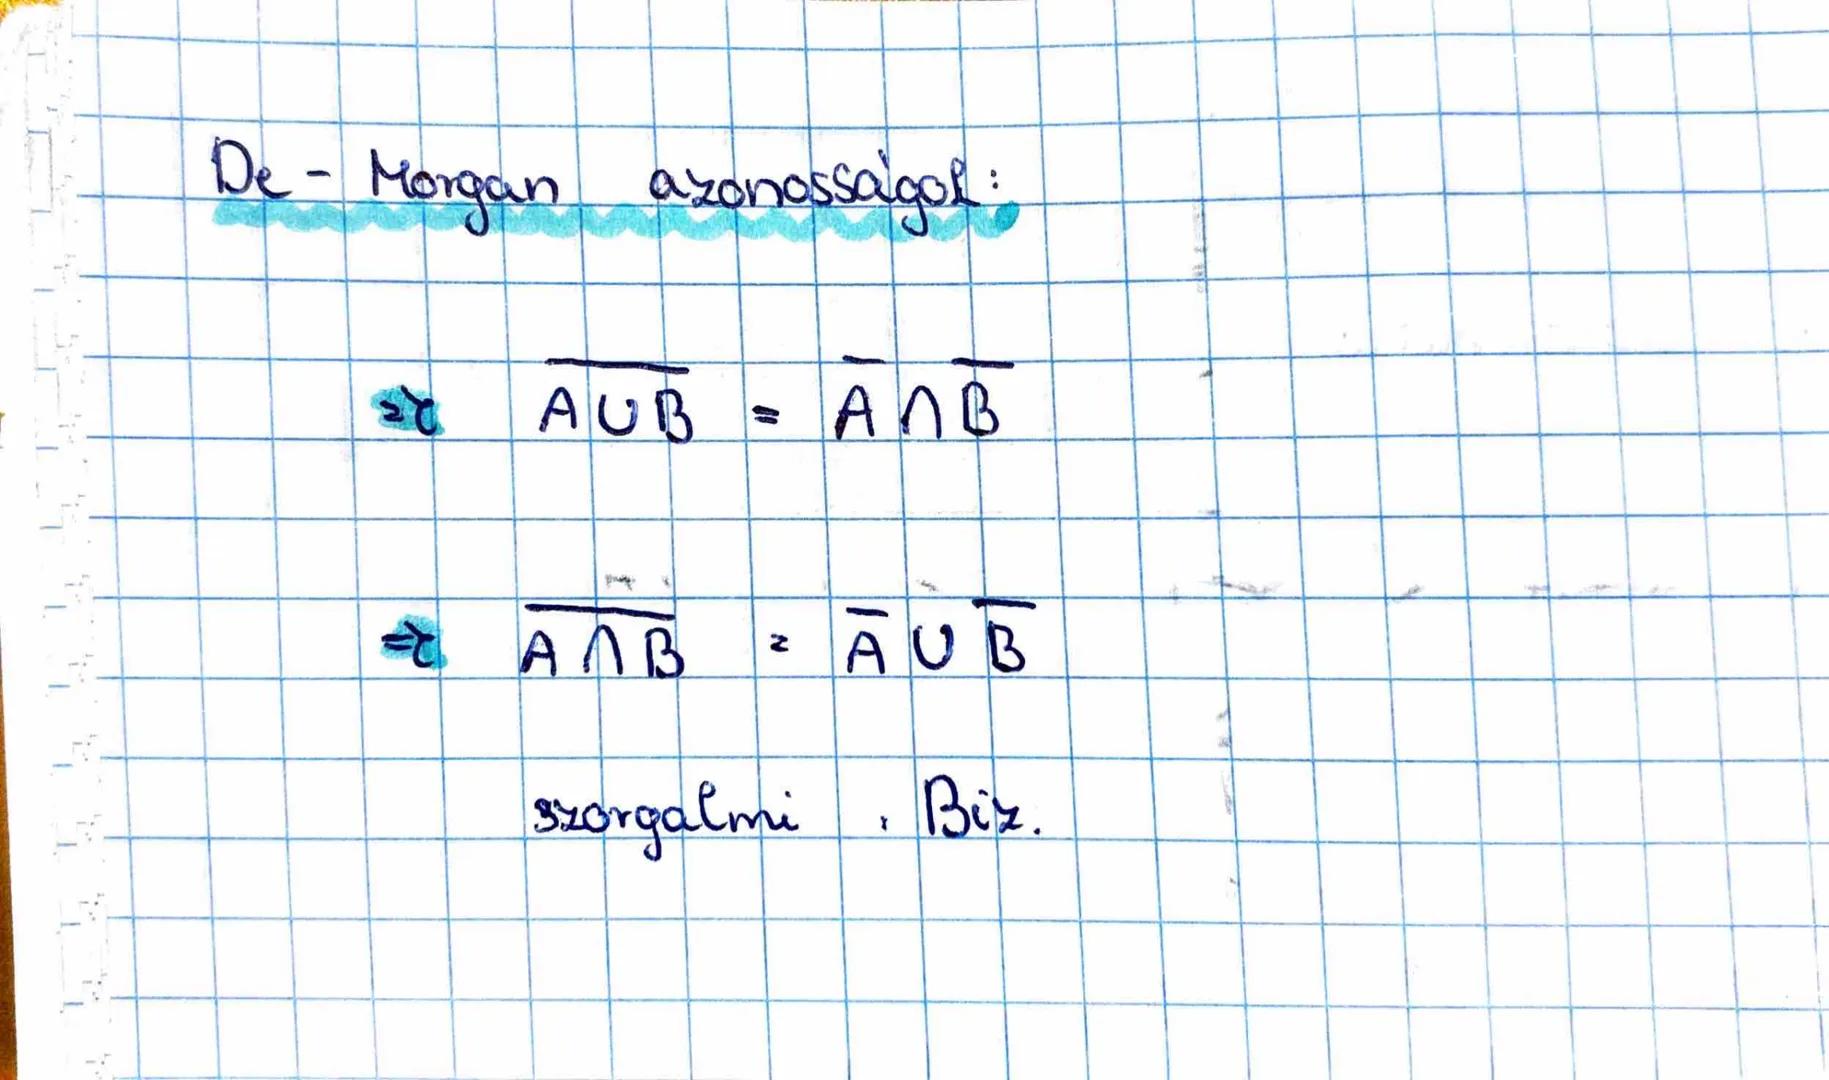 De - Morgan azonosságok:
⇒ \overline{A∪B} = \overline{A} ∩ \overline{B}
⇒ \overline{A∩B} = \overline{A} ∪ \overline{B}
szorgalmi . Biz.